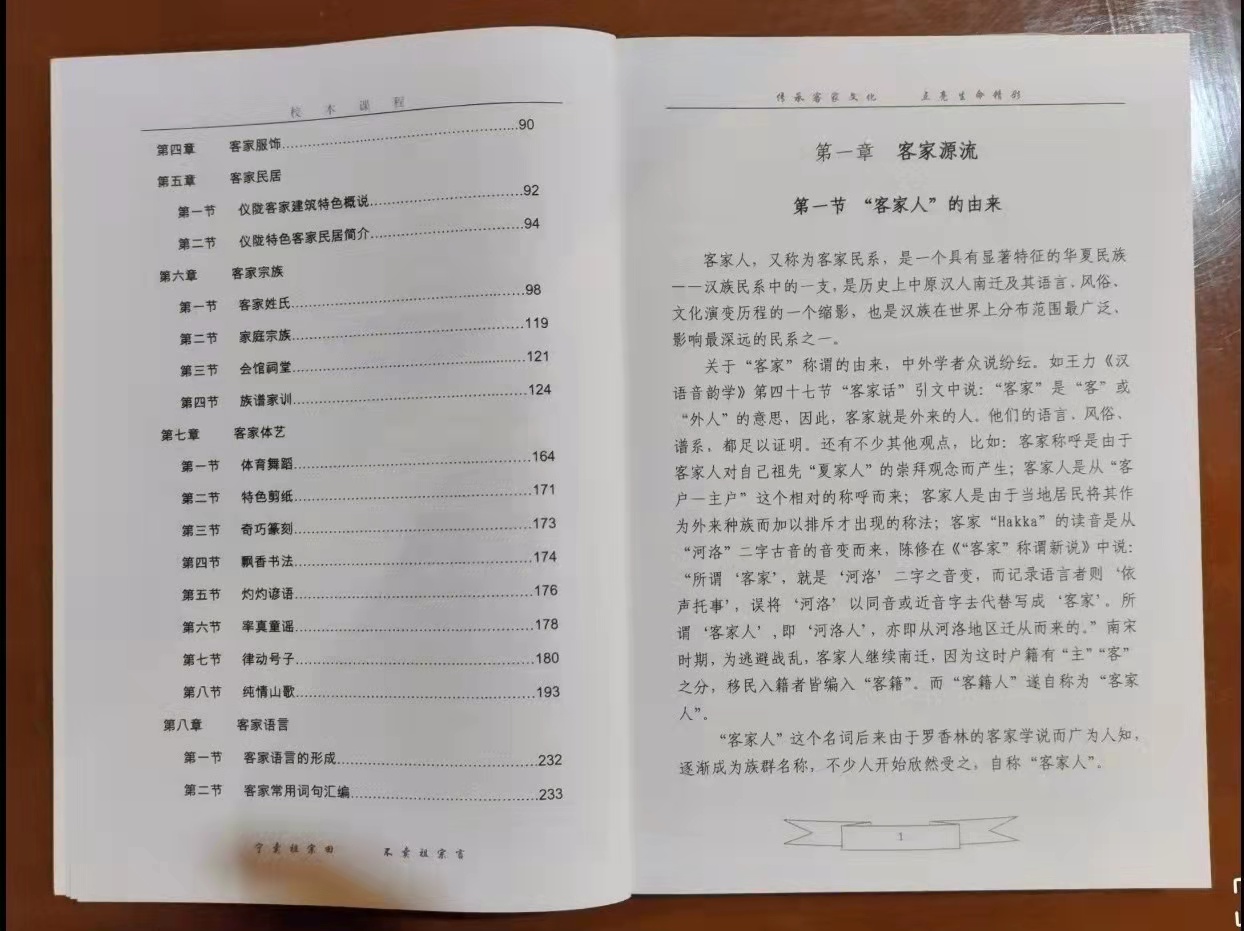 校 本 课 程
第四章 客家服饰……90
第五章 客家民居
第一节 仪陇客家建筑特色概说……92
第二节 仪陇特色客家民居简介……94
第六章 客家宗族
第一节 客家姓氏……98
第二节 家庭宗族……119
第三节 会馆祠堂……121
第四节 族谱家训……124
第七章 客家体艺
第一节 体育舞蹈……164
第二节 特色剪纸……171
第三节 奇巧篆刻……173
第四节 飘香书法……174
第五节 灼灼谚语……176
第六节 率真童谣……178
第七节 律动号子……180
第八节 纯情山歌……193
第八章 客家语言
第一节 客家语言的形成……232
第二节 客家常用词句汇编……233
宁卖祖宗田 不卖祖宗言
传承客家文化 点亮生命精彩
第一章 客家源流
第一节 “客家人”的由来
客家人，又称为客家民系，是一个具有显著特征的华夏民族
——汉族民系中的一支，是历史上中原汉人南迁及其语言、风俗、
文化演变历程的一个缩影，也是汉族在世界上分布范围最广泛、
影响最深远的民系之一。
关于“客家”称谓的由来，中外学者众说纷纭。如王力《汉
语音韵学》第四十七节“客家话”引文中说：“客家”是“客”或
“外人”的意思，因此，客家就是外来的人。他们的语言、风俗、
谱系，都足以证明。还有不少其他观点，比如：客家称呼是由于
客家人对自己祖先“夏家人”的崇拜观念而产生；客家人是从“客
户—主户”这个相对的称呼而来；客家人是由于当地居民将其作
为外来种族而加以排斥才出现的称法；客家“Hakka”的读音是从
“河洛”二字古音的音变而来，陈修在《“客家”称谓新说》中说：
“所谓‘客家’，就是‘河洛’二字之音变，而记录语言者则‘依
声托事’，误将‘河洛’以同音或近音字去代替写成‘客家’。所
谓‘客家人’，即‘河洛人’，亦即从河洛地区迁从而来的。”南宋
时期，为逃避战乱，客家人继续南迁，因为这时户籍有“主”“客”
之分，移民入籍者皆编入“客籍”。而“客籍人”遂自称为“客家
人”。
“客家人”这个名词后来由于罗香林的客家学说而广为人知，
逐渐成为族群名称，不少人开始欣然受之，自称“客家人”。
1